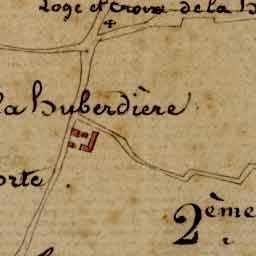 Loge et Croix de la
la huberdière
orte
2ème